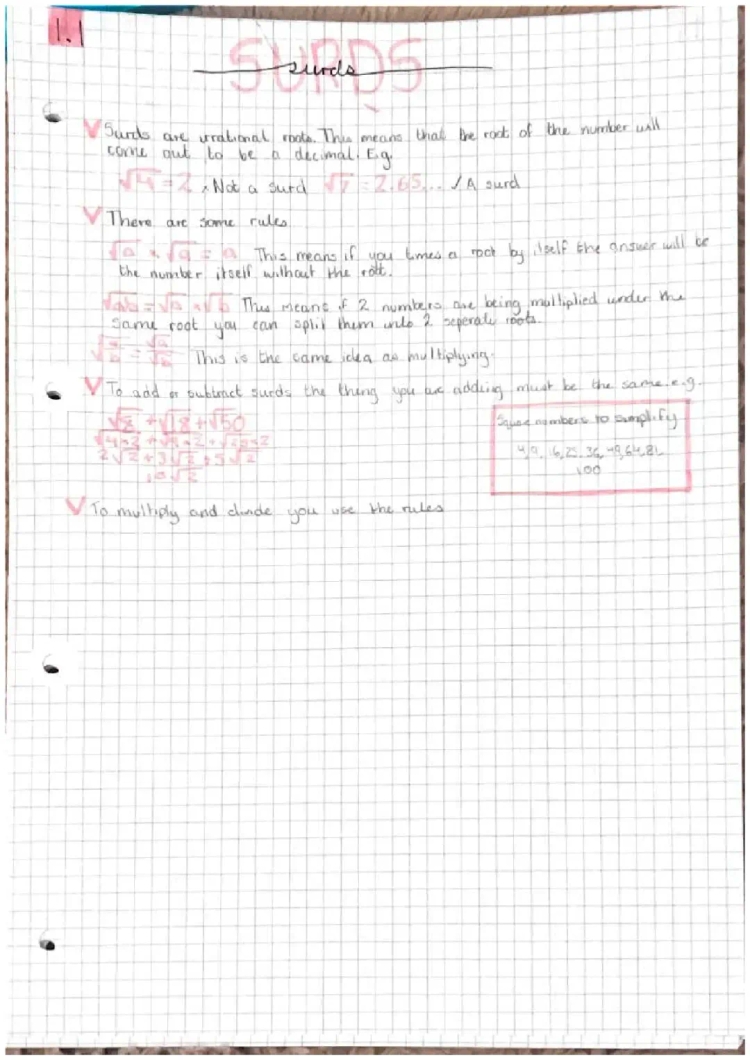 1.1
SURDS
surds
Surds are irrational roots. This means that the root of the number will
come out to be a decimal. E.g.
√4 = 2 × Not a surd √7 = 2.65... ✓ A surd
There are some rules
√a × √a = a This means if you times a root by itself the answer will be
the number itself without the root.
√ab = √a × √b This means if 2 numbers are being multiplied under the
same root you can split them into 2 seperate roots.
√a/b = √a/√b This is the same idea as multiplying.
To add or subtract surds the thing you are adding must be the same. e.g.
√8 + √18 + √50
√4×2 + √9×2 + √25×2
2√2 + 3√2 + 5√2
10√2
Square numbers to simplify
4, 9, 16, 25, 36, 49, 64, 81,
100
To multiply and divide you use the rules